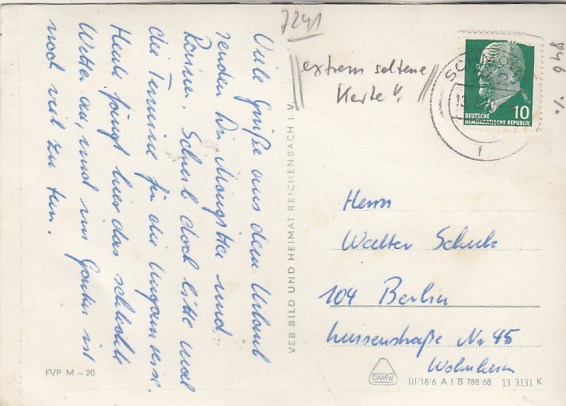 Viele Grüße aus dem Urlaub
senden Dir und
Schreib doch bitte mal
die Termine für die Ungarnreise.
Heute fängt hier das schlechte
Wetter an, und im Garten ist
noch viel zu tun.
7241
extrem seltene
Karte!!
846
DEUTSCHE
DEMOKRATISCHE REPUBLIK
10
VEB BILD UND HEIMAT REICHENBACH I. V.
Herrn
Walter Schulz
104 Berlin
Luisenstraße Nr 45
Wohnheim
EVP M – 20
DAMW
III/18/6 A 1/B 788/68 13 3131 K